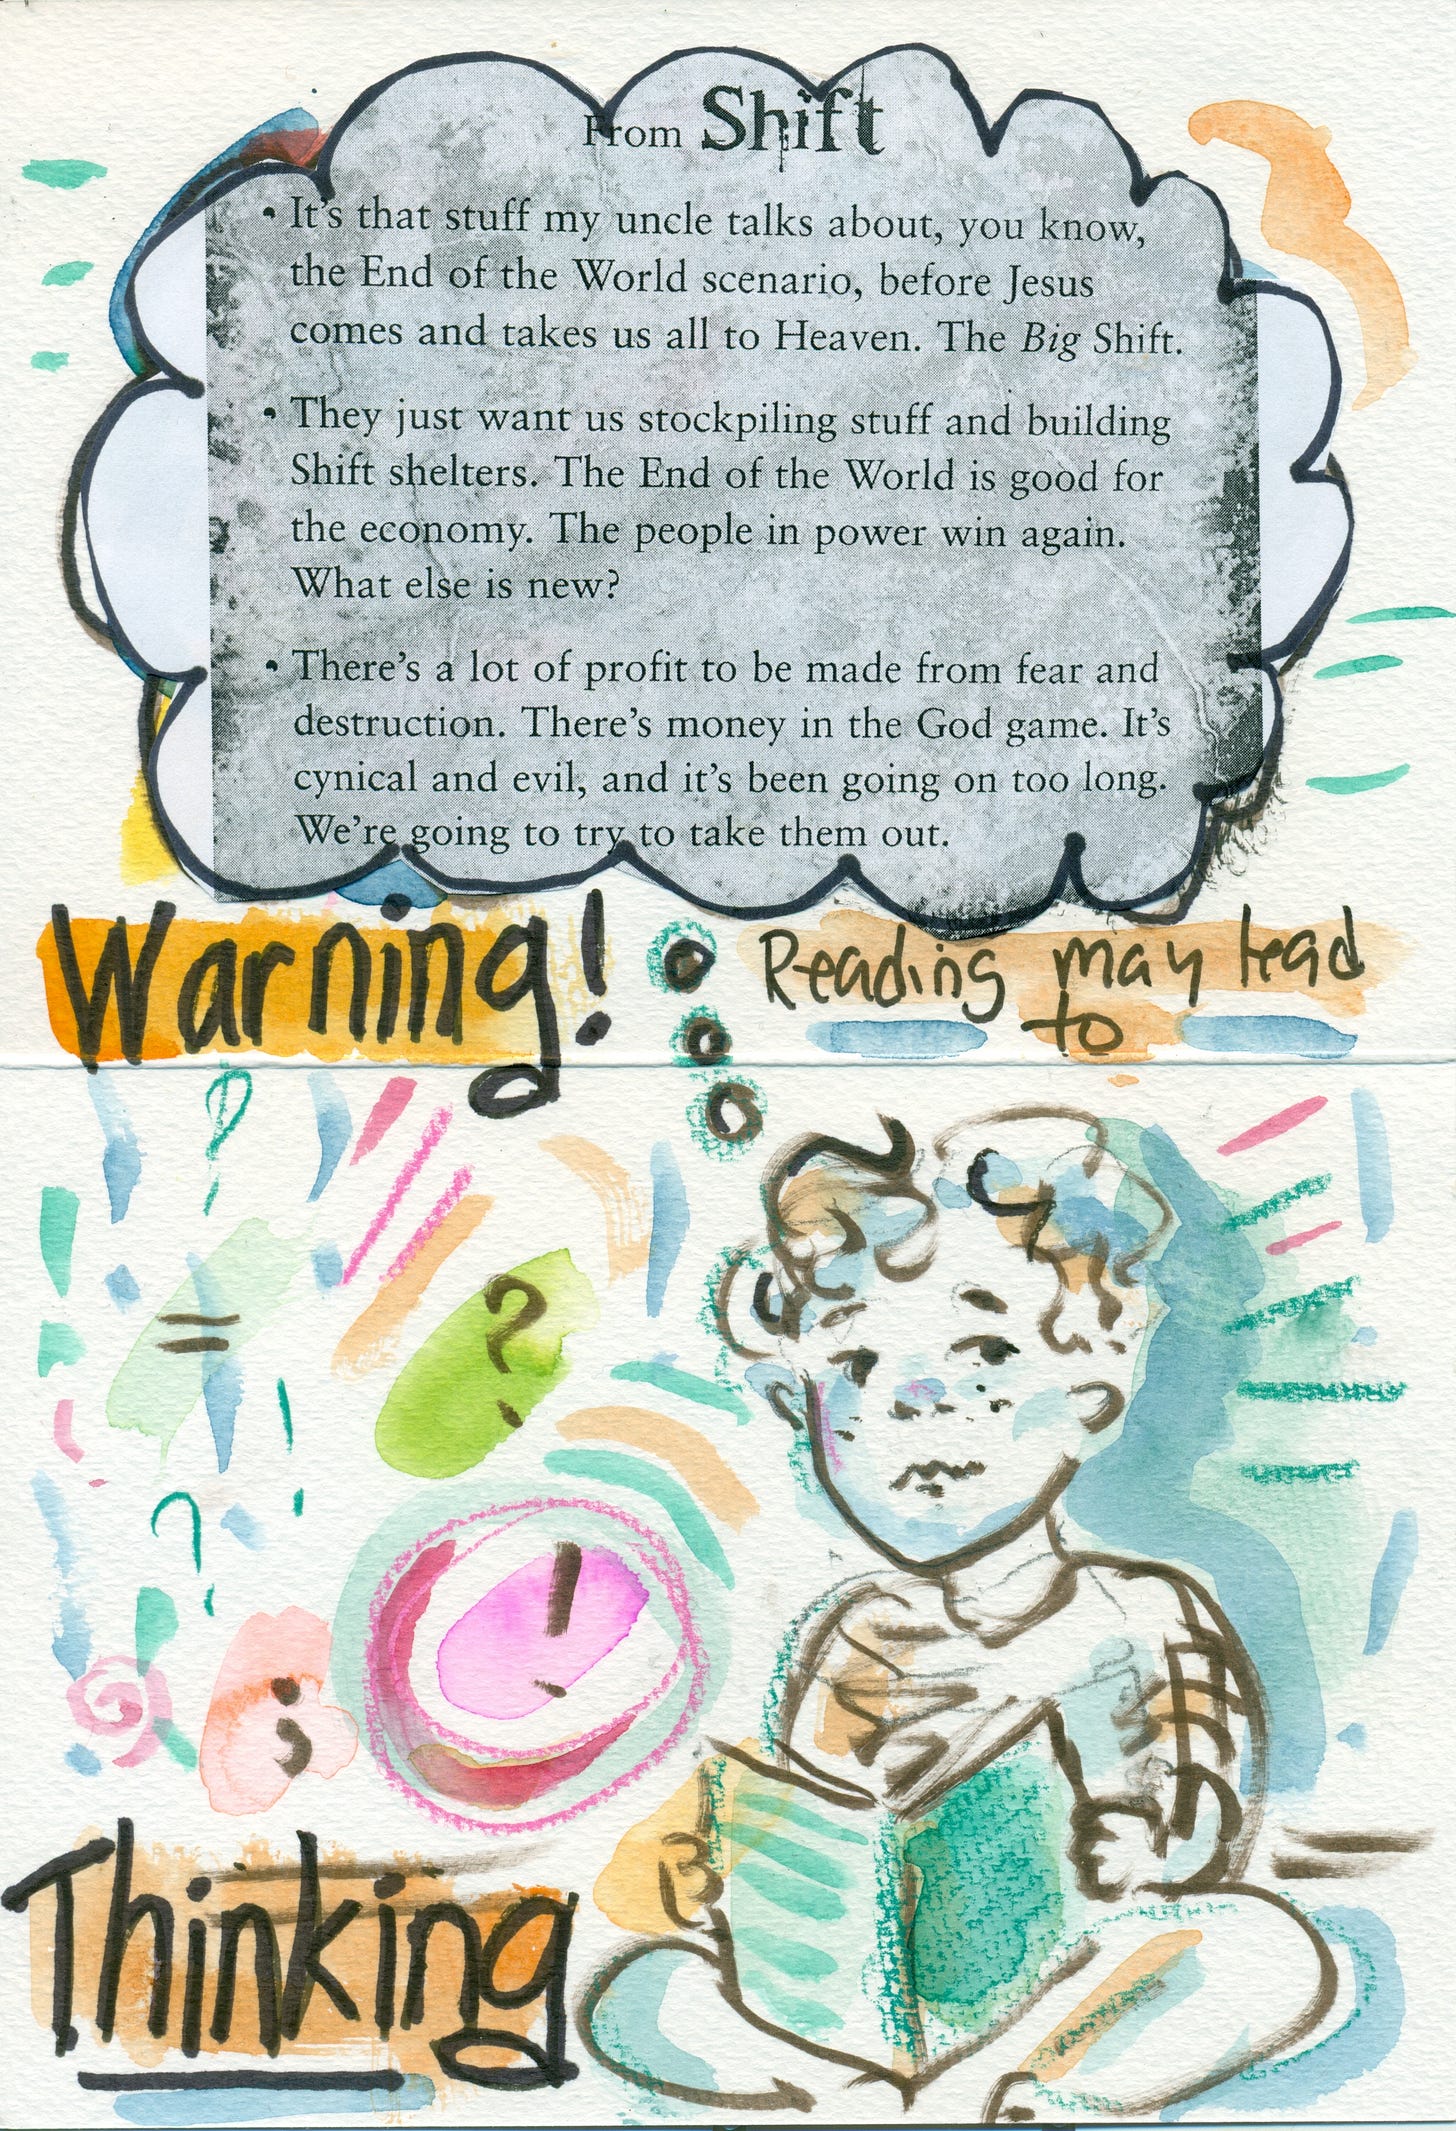 From Shift
• It's that stuff my uncle talks about, you know,
the End of the World scenario, before Jesus
comes and takes us all to Heaven. The Big Shift.
• They just want us stockpiling stuff and building
Shift shelters. The End of the World is good for
the economy. The people in power win again.
What else is new?
• There's a lot of profit to be made from fear and
destruction. There's money in the God game. It's
cynical and evil, and it's been going on too long.
We're going to try to take them out.
Warning!
Reading may lead
to
?
=
?
!
?
!
;
Thinking